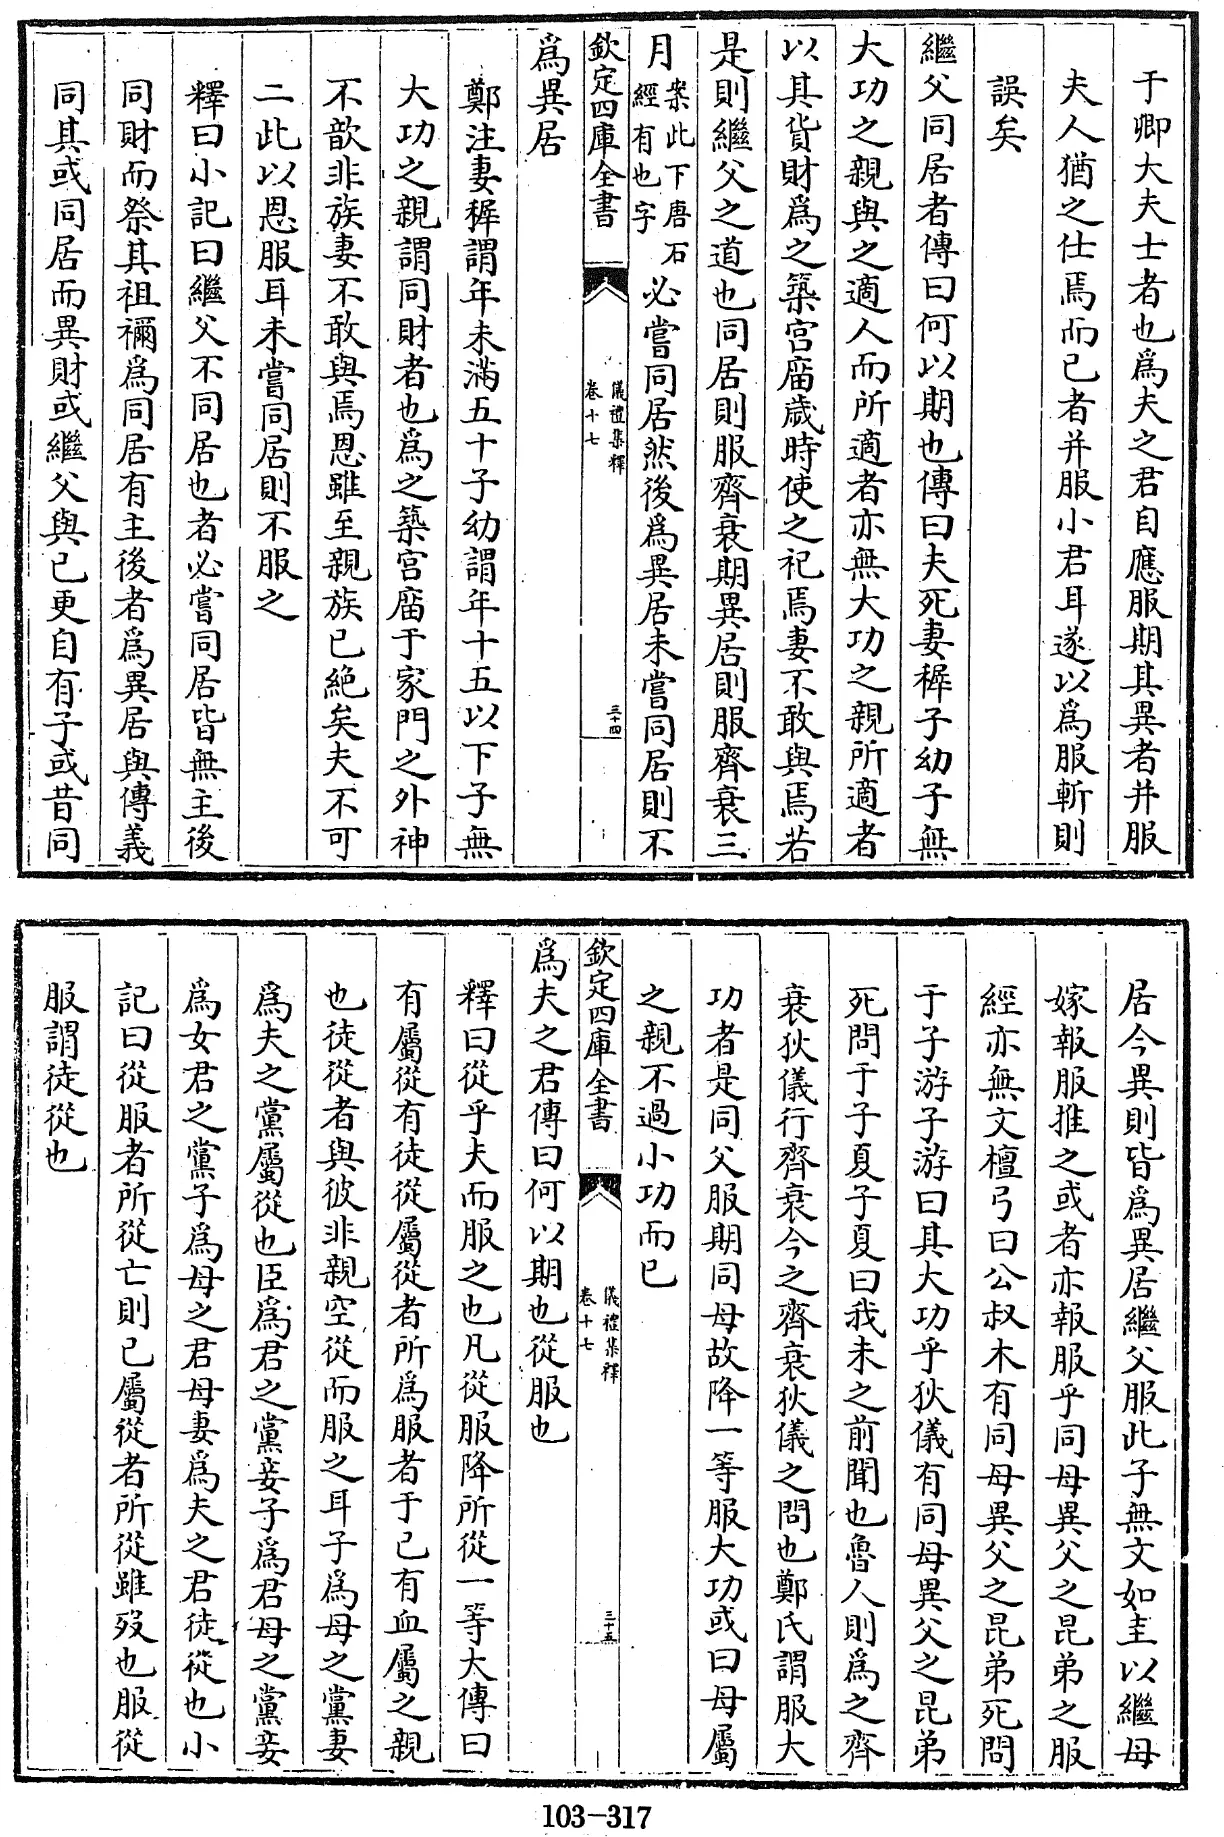 于卿大夫士者也爲夫之君自應服期其異者并服
夫人猶之仕焉而已者并服小君耳遂以爲服斬則
誤矣
繼父同居者傳曰何以期也傳曰夫死妻穉子幼子無
大功之親與之適人而所適者亦無大功之親所適者
以其貨財爲之築宮庿歲時使之祀焉妻不敢與焉若
是則繼父之道也同居則服齊衰期異居則服齊衰三
月案此下唐石經有也字必嘗同居然後爲異居未嘗同居則不
欽定四庫全書
儀禮集釋
卷十七
三十四
爲異居
鄭注妻穉謂年未滿五十子幼謂年十五以下子無
大功之親謂同財者也爲之築宮庿于家門之外神
不歆非族妻不敢與焉恩雖至親族已絕矣夫不可
二此以恩服耳未嘗同居則不服之
釋曰小記曰繼父不同居也者必嘗同居皆無主後
同財而祭其祖禰爲同居有主後者爲異居與傳義
同其或同居而異財或繼父與已更自有子或昔同
居今異則皆爲異居繼父服此子無文如圭以繼母
嫁報服推之或者亦報服乎同母異父之昆弟之服
經亦無文檀弓曰公叔木有同母異父之昆弟死問
于子游子游曰其大功乎狄儀有同母異父之昆弟
死問于子夏子夏曰我未之前聞也魯人則爲之齊
衰狄儀行齊衰今之齊衰狄儀之問也鄭氏謂服大
功者是同父服期同母故降一等服大功或曰母屬
之親不過小功而已
欽定四庫全書
儀禮集釋
卷十七
三十五
爲夫之君傳曰何以期也從服也
釋曰從乎夫而服之也凡從服降所從一等大傳曰
有屬從有徒從屬從者所爲服者于己有血屬之親
也徒從者與彼非親空從而服之耳子爲母之黨妻
爲夫之黨屬從也臣爲君之黨妾子爲君母之黨妾
爲女君之黨子爲母之君母妻爲夫之君徒從也小
記曰從服者所從亡則已屬從者所從雖歿也服從
服謂徒從也
103-317